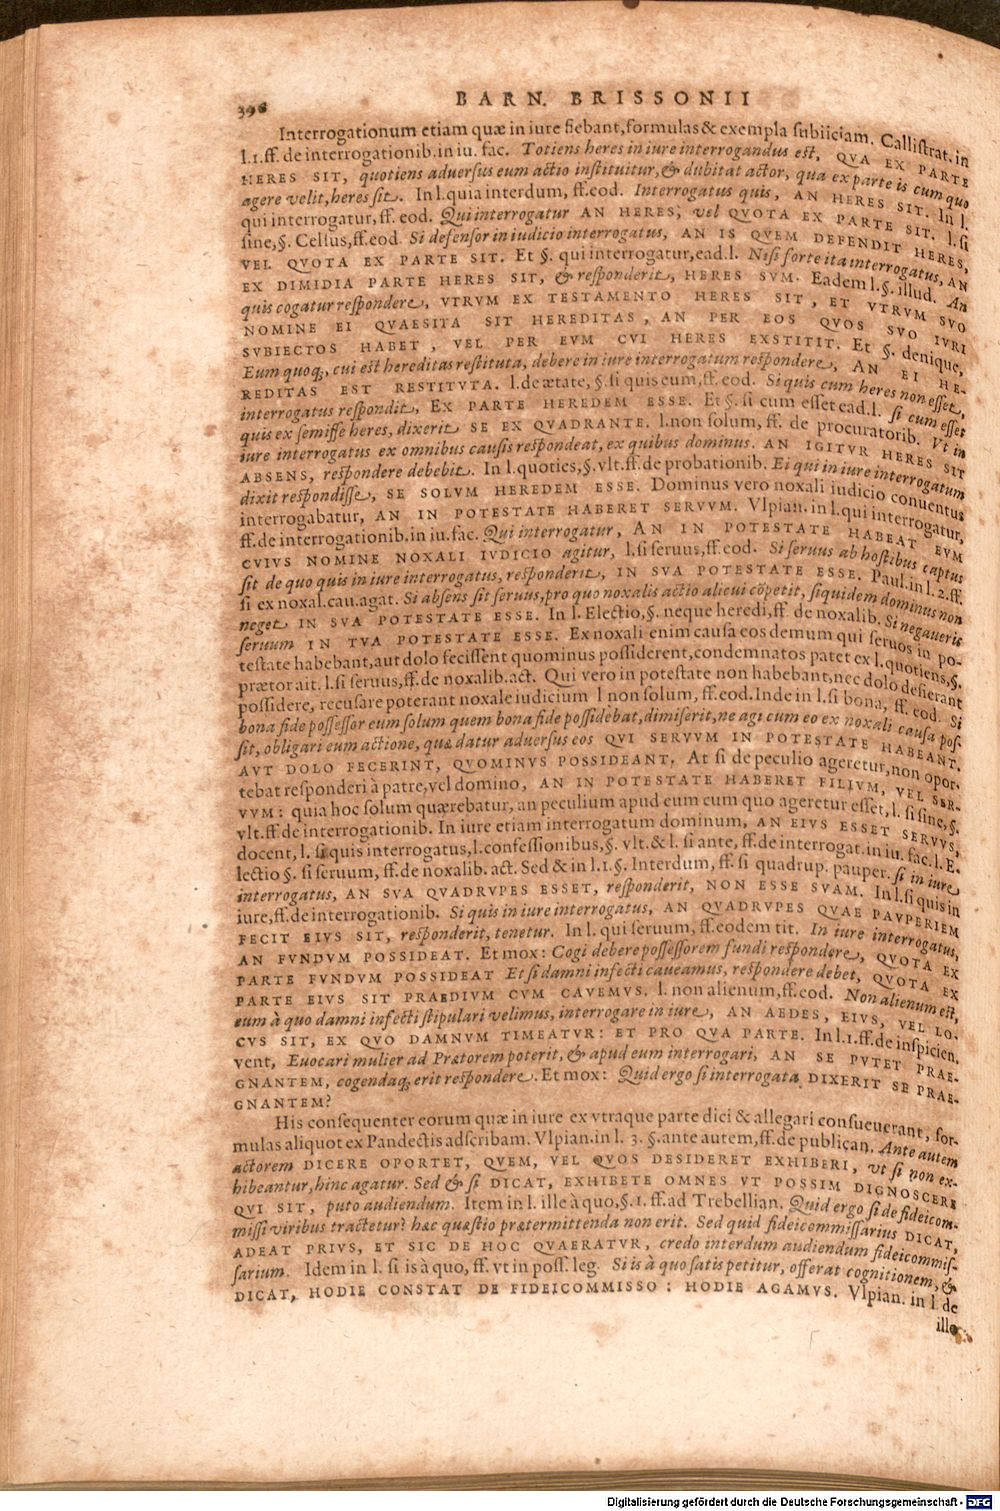 396
BARN. BRISSONII
Interrogationum etiam quæ in iure fiebant, formulas & exempla subiiciam. Callistrat. in
l. 1. ff. de interrogationib. in iu. fac. Totiens heres in iure interrogandus est, QVA EX PARTE
HERES SIT, quotiens aduersus eum actio instituitur, & dubitat actor, qua ex parte is cum quo
agere velit, heres sit. In l. quia interdum, ff. eod. Interrogatus quis, AN HERES SIT. In l.
qui interrogatur, ff. eod. Qui interrogatur AN HERES, vel QVOTA EX PARTE SIT. l. si
sine, §. Celsus, ff. eod. Si defensor in iudicio interrogatus, AN IS QVEM DEFENDIT HERES,
VEL QVOTA EX PARTE SIT. Et §. qui interrogatur, ead. l. Nisi forte ita interrogatus, AN
EX DIMIDIA PARTE HERES SIT, & responderit, HERES SVM. Eadem l. §. illud. An
quis cogatur respondere, VTRVM EX TESTAMENTO HERES SIT, ET VTRVM SVO
NOMINE EI QVAESITA SIT HEREDITAS, AN PER EOS QVOS SVO IVRI
SVBIECTOS HABET, VEL PER EVM CVI HERES EXSTITIT. Et §. denique,
Eum quoq, cui est hereditas restituta, debere in iure interrogatum respondere, AN EI HE-
REDITAS EST RESTITVTA. l. de ætate, §. si quis eum, ff. eod. Si quis cum heres non esset,
interrogatus respondit, EX PARTE HEREDEM ESSE. Et §. si cum esset ead. l. si cum esset
quis ex semisse heres, dixerit SE EX QVADRANTE. l. non solum, ff. de procuratorib. Vt in
iure interrogatus ex omnibus causis respondeat, ex quibus dominus. AN IGITVR HERES SIT
ABSENS, respondere debebit. In l. quoties, §. vlt. ff. de probationib. Ei qui in iure interrogatum
dixit respondisse, SE SOLVM HEREDEM ESSE. Dominus vero noxali iudicio conuentus
interrogabatur, AN IN POTESTATE HABERET SERVVM. Vlpian. in l. qui interrogatur,
ff. de interrogationib. in iu. fac. Qui interrogatur, AN IN POTESTATE HABEAT EVM
CVIVS NOMINE NOXALI IVDICIO agitur, l. si seruus, ff. eod. Si seruus ab hostibus captus
sit de quo quis in iure interrogatus, responderit, IN SVA POTESTATE ESSE. Paul. in l. 2. ff.
si ex noxal. cau. agat. Si absens sit seruus, pro quo noxalis actio alicui cõpetit, siquidem dominus non
neget IN SVA POTESTATE ESSE. In l. Electio, §. neque heredi, ff. de noxalib. Si negaueris
seruum IN TVA POTESTATE ESSE. Ex noxali enim causa eos demum qui seruos in po-
testate habebant, aut dolo fecissent quominus possiderent, condemnatos patet ex l. quotiens, §.
prætor ait. l. si seruus, ff. de noxalib. act. Qui vero in potestate non habebant, nec dolo desierant
possidere, recusare poterant noxale iudicium l non solum, ff. eod. Inde in l. si bona, ff. eod. Si
bona fide possessor eum solum quem bona fide possidebat, dimiserit, ne agi cum eo ex noxali causa pos-
sit, obligari eum actione, quæ datur aduersus eos QVI SERVVM IN POTESTATE HABEANT.
AVT DOLO FECERINT, QVOMINVS POSSIDEANT. At si de peculio ageretur, non opor-
tebat responderi à patre, vel domino, AN IN POTESTATE HABERET FILIVM, VEL SER-
VVM: quia hoc solum quærebatur, an peculium apud eum cum quo ageretur esset, l. si sine, §.
vlt. ff de interrogationib. In iure etiam interrogatum dominum, AN EIVS ESSET SERVVS,
docent, l. si quis interrogatus, l. confessionibus, §. vlt. & l. si ante, ff. de interrogat. in iu. fac. l. E-
lectio §. si seruum, ff. de noxalib. act. Sed & in l. 1. §. Interdum, ff. si quadrup. pauper. si in iure
interrogatus, AN SVA QVADRVPES ESSET, responderit, NON ESSE SVAM. In l. si quis in
iure, ff. de interrogationib. Si quis in iure interrogatus, AN QVADRVPES QVAE PAVPERIEM
FECIT EIVS SIT, responderit, tenetur. In l. qui seruum, ff. eodem tit. In iure interrogatus,
AN FVNDVM POSSIDEAT. Et mox: Cogi debere possessorem fundi respondere, QVOTA EX
PARTE FVNDVM POSSIDEAT Et si damni infecti caueamus, respondere debet, QVOTA EX
PARTE EIVS SIT PRAEDIVM CVM CAVEMVS. l. non alienum, ff. eod. Non alienum est,
eum à quo damni infecti stipulari velimus, interrogare in iure, AN AEDES, EIVS, VEL LO-
CVS SIT, EX QVO DAMNVM TIMEATVR: ET PRO QVA PARTE. In l. 1. ff. de inspicien.
vent, Euocari mulier ad Prætorem poterit, & apud eum interrogari, AN SE PVTET PRAE-
GNANTEM, cogendaq, erit respondere. Et mox: Quid ergo si interrogata DIXERIT SE PRAE-
GNANTEM?
His consequenter eorum quæ in iure ex vtraque parte dici & allegari consueuerant, for-
mulas aliquot ex Pandectis adscribam. Vlpian. in l. 3. §. ante autem, ff. de publican. Ante autem
actorem DICERE OPORTET, QVEM, VEL QVOS DESIDERET EXHIBERI, vt si non ex-
hibeantur, hinc agatur. Sed & si DICAT, EXHIBETE OMNES VT POSSIM DIGNOSCERE
QVI SIT, puto audiendum. Item in l. ille à quo, §. 1. ff. ad Trebellian. Quid ergo si de fideicom-
missi viribus tractetur? hæc quæstio prætermittenda non erit. Sed quid fideicommissarius DICAT,
ADEAT PRIVS, ET SIC DE HOC QVAERATVR, credo interdum audiendum fideicommis-
sarium. Idem in l. si is à quo, ff. vt in poss. leg. Si is à quo satis petitur, offerat cognitionem, &
DICAT, HODIE CONSTAT DE FIDEICOMMISSO: HODIE AGAMVS. Vlpian. in l. de
illo
Digitalisierung gefördert durch die Deutsche Forschungsgemeinschaft - DFG